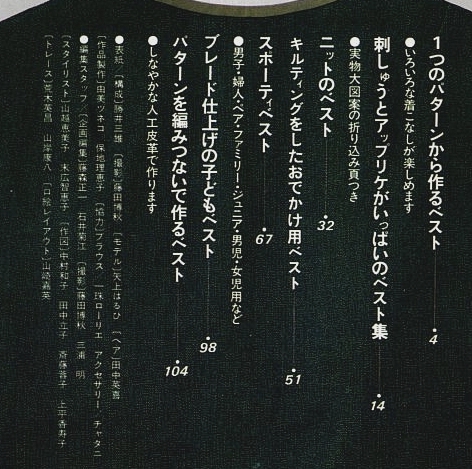 1つのパターンから作るベスト 4
●いろいろな着こなしが楽しめます
刺しゅうとアップリケがいっぱいのベスト集 14
●実物大図案の折り込み頁つき
ニットのベスト 32
キルティングをしたおでかけ用ベスト 51
スポーティベスト 67
●男子・婦人・ペア・ファミリー・ジュニア・男児・女児用など
ブレード仕上げの子どもベスト 98
パターンを編みつないで作るベスト 104
●しなやかな人工皮革で作ります
●表紙／〔構成〕藤井三雄 〔撮影〕藤田博秋 〔モデル〕矢上はるひ 〔ヘア〕田中英喜
〔作品製作〕由美ツネコ 保地理恵子 〔協力〕ブラウス 一珠ローリエ アクセサリー・チャタニ
●編集スタッフ／〔企画編集〕藤森正一 石井菊江 〔撮影〕藤田博秋 三浦 明
〔スタイリスト〕山越恵美子 末広智恵子 〔作図〕中村和子 田中立子 斎藤蓉子 上平香寿子
〔トレース〕荒木英昌 山岸康八 〔口絵レイアウト〕山崎嘉英